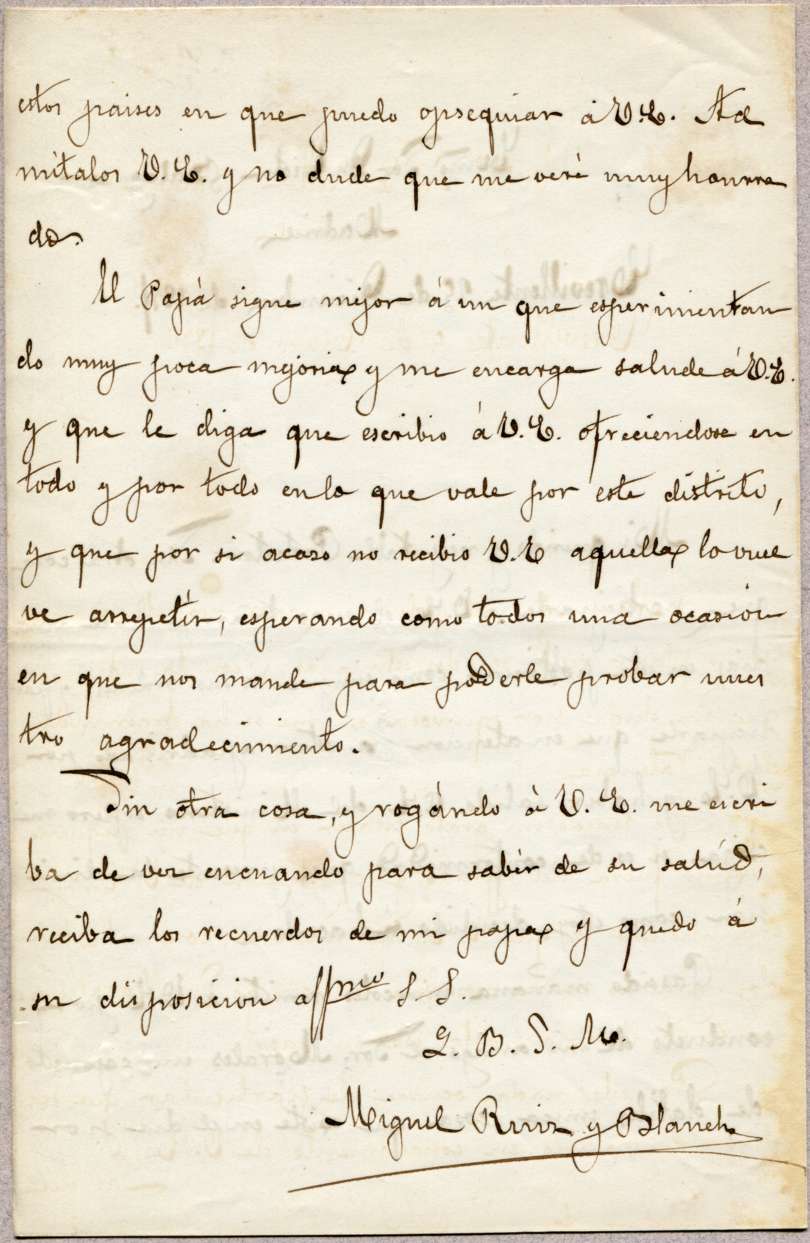 estos paises en que puedo opsequiar á V.E. Ad
mitalos V.E. y no dude que me veré muy honrra
do.
El Papá sigue mejor á un que esperimentan
do muy poca mejoria y me encarga salude á V.E.
y que le diga que escribio á V.E. ofreciendose en
todo y por todo en lo que vale por este distrito,
y que por si acaso no recibio V.E aquella lo vuel
ve arrepetir, esperando como todos una ocasión
en que nos mande para poderle probar nues
tro agradecimiento.
Sin otra cosa, y rogándo á V.E. me escri
ba de vez encuando para sabér de su salúd,
reciba los recuerdos de mi papa y quedo á
su disposicion affmo S.S.
Q. B. S. M.
Miguel Ruiz y Blanch